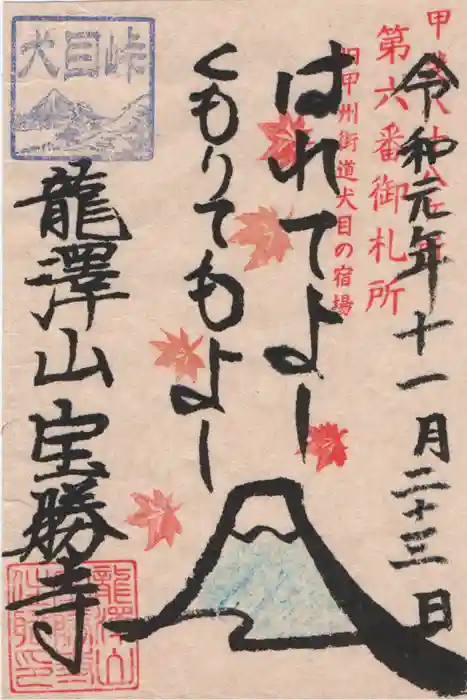 令和元年十一月二十三日
第六番御札所
旧甲州街道犬目の宿場
はれてよし
くもりてもよし
犬目峠
龍澤山宝勝寺